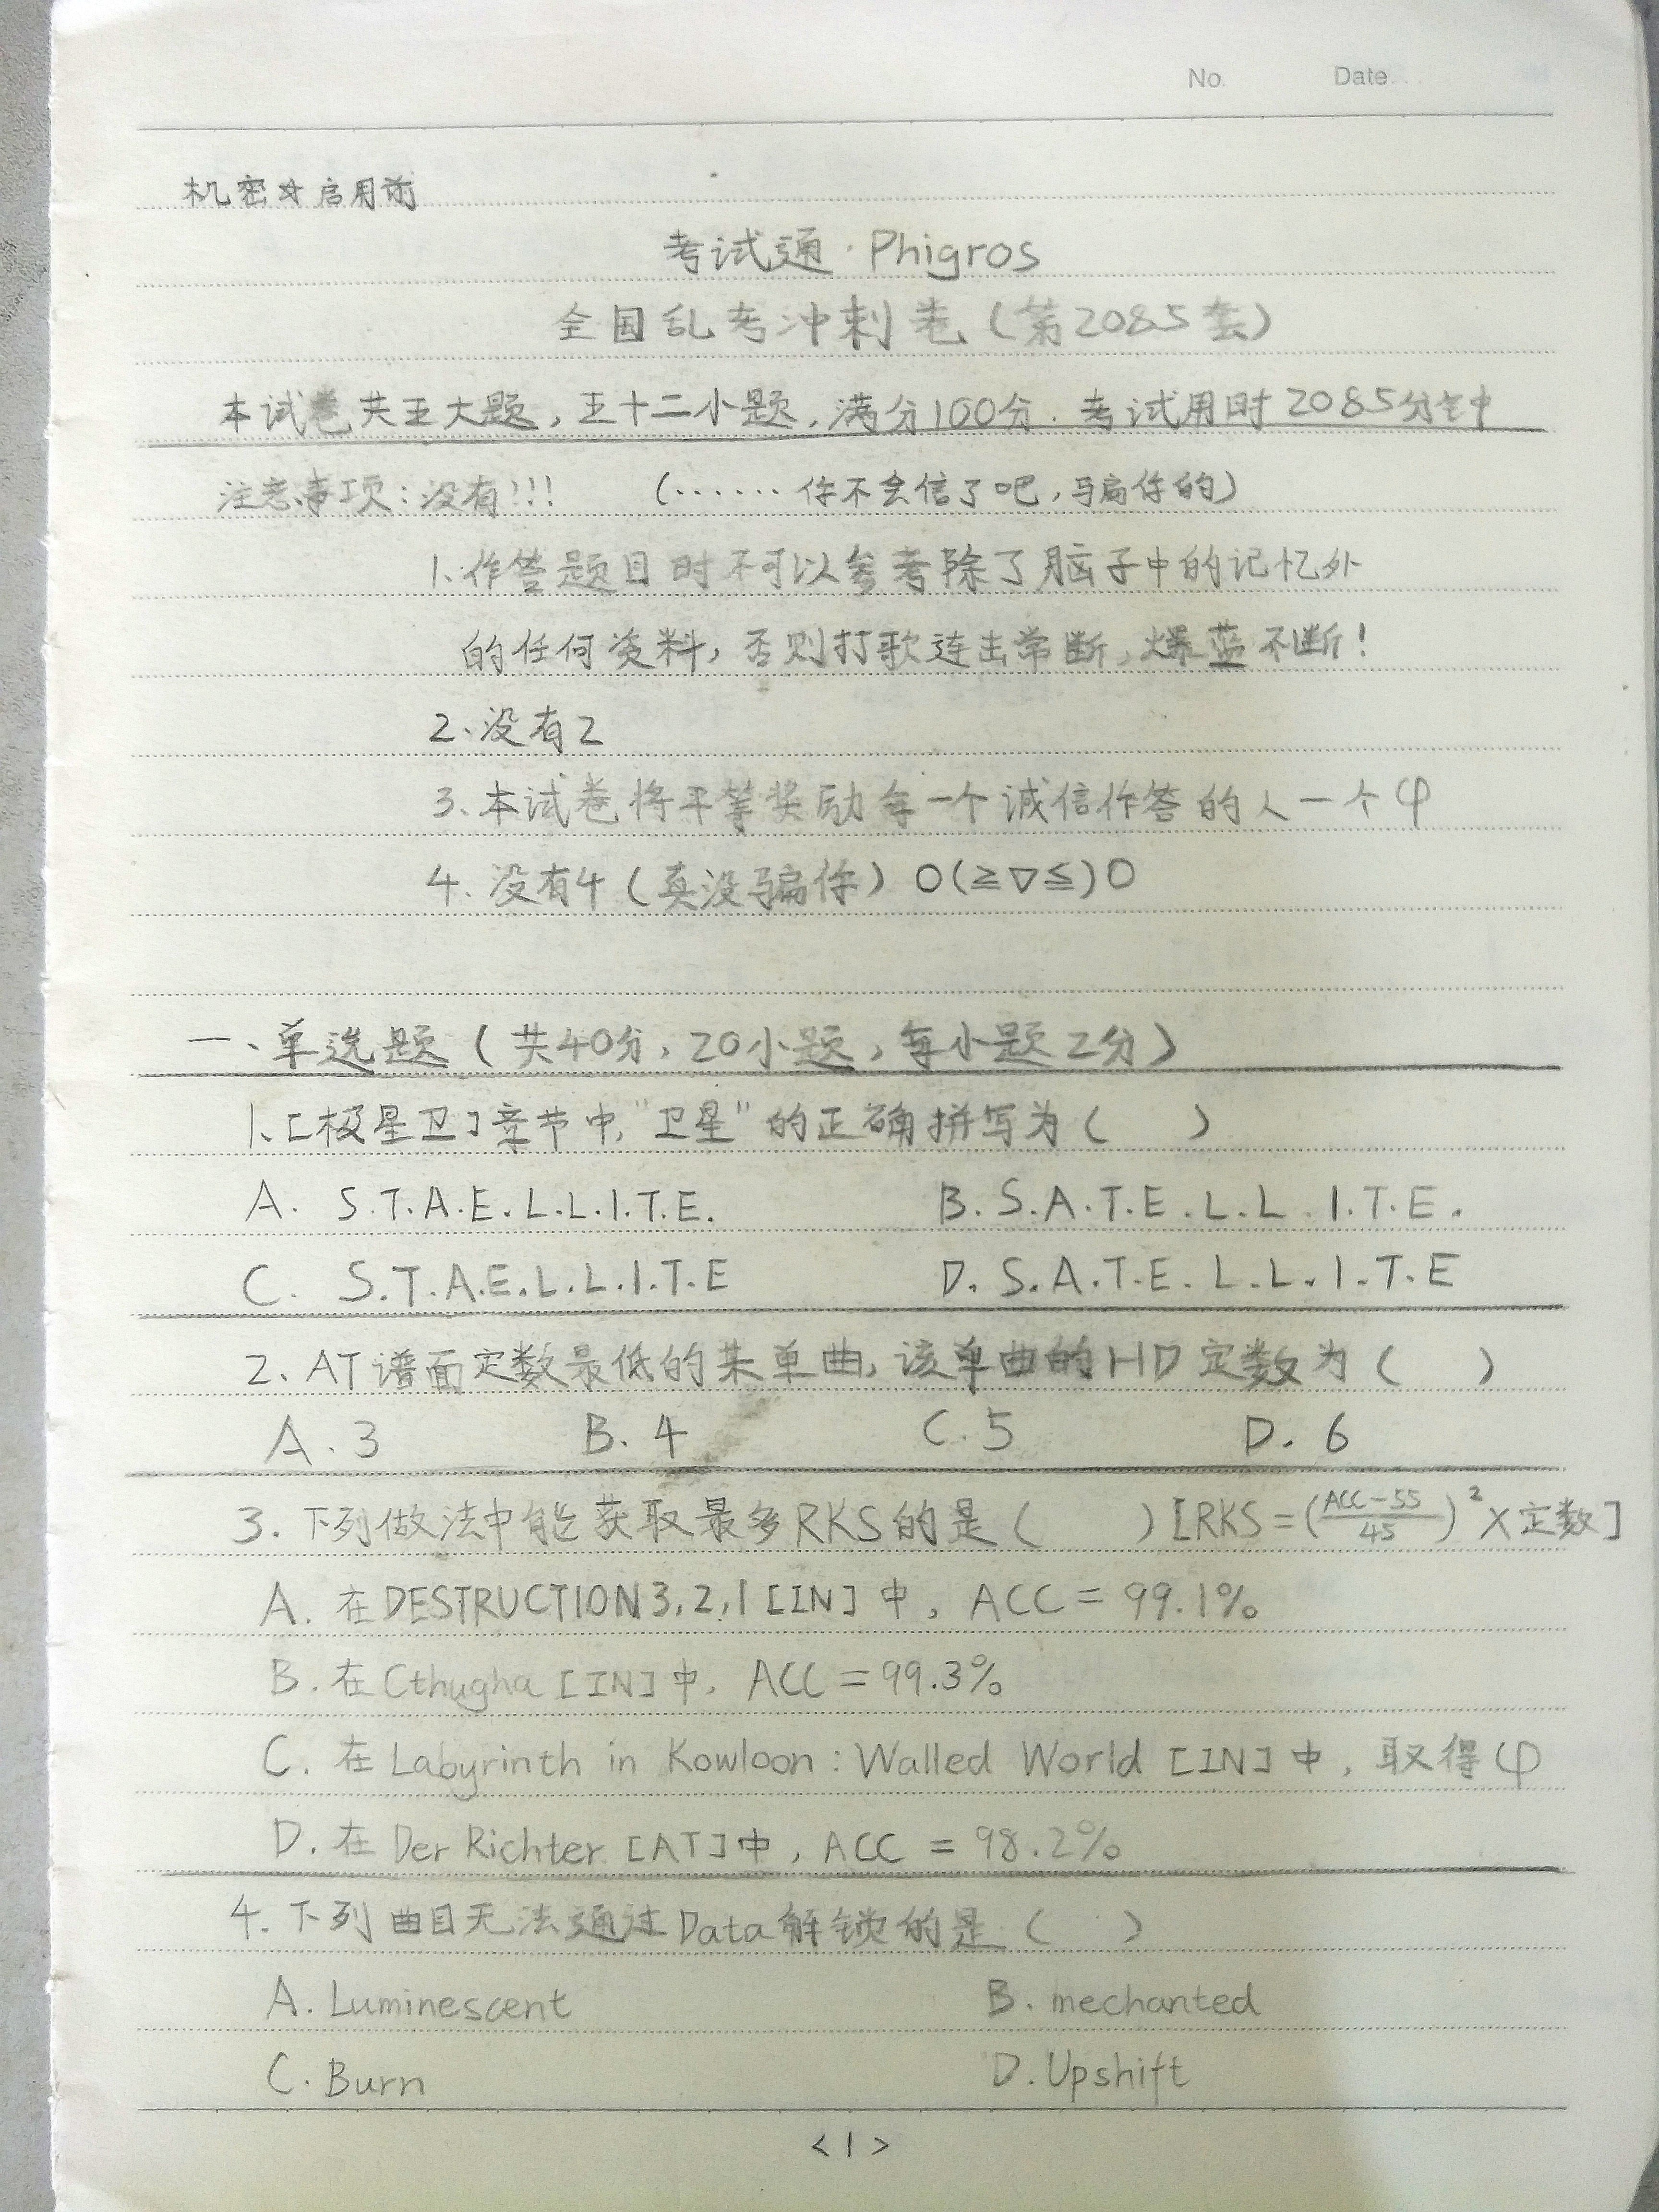 No. Date
机密☆启用前
考试通·Phigros
全国乱考冲刺卷(第2085套)
本试卷共五大题,五十二小题,满分100分.考试用时2085分钟
注意事项:没有!!! (……你不会信了吧,骗你的)
1、作答题目时不可以参考除了脑子中的记忆外
的任何资料,否则打歌连击常断,爆蓝不断!
2、没有2
3、本试卷将平等奖励每一个诚信作答的人一个φ
4、没有4(真没骗你)O(≧▽≦)O
一、单选题(共40分,20小题,每小题2分)
1、[极星卫]章节中,"卫星"的正确拼写为( )
A. S.T.A.E.L.L.I.T.E. B. S.A.T.E.L.L.I.T.E.
C. S.T.A.E.L.L.I.T.E D. S.A.T.E.L.L.I.T.E
2、AT谱面定数最低的某单曲,该单曲的HD定数为( )
A.3 B.4 C.5 D.6
3.下列做法中能获取最多RKS的是( )[RKS=(ACC-55/45)²×定数]
A.在DESTRUCTION3,2,1[IN]中,ACC=99.1%
B.在Cthugha[IN]中,ACC=99.3%
C.在Labyrinth in Kowloon:Walled World[IN]中,取得φ
D.在Der Richter[AT]中,ACC=98.2%
4.下列曲目无法通过Data解锁的是( )
A.Luminescent B.mechanted
C.Burn D.Upshift
<1>